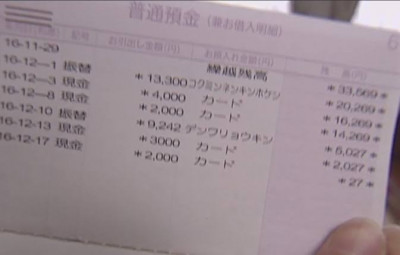 普通預金(兼お借入明細) 6
記号 お引出し金額(円) お預入れ金額(円)
16-11-29 繰越残高 *33,569*
16-12--1 振替 *13,300 コクミンネンキンホケン *20,269*
16-12--3 現金 *4,000 カード *16,269*
16-12--8 現金 *2,000 カード *14,269*
16-12-10 振替 *9,242 デンワリョウキン *5,027*
16-12-13 現金 *3000 カード *2,027*
16-12-17 現金 *2,000 カード *27*